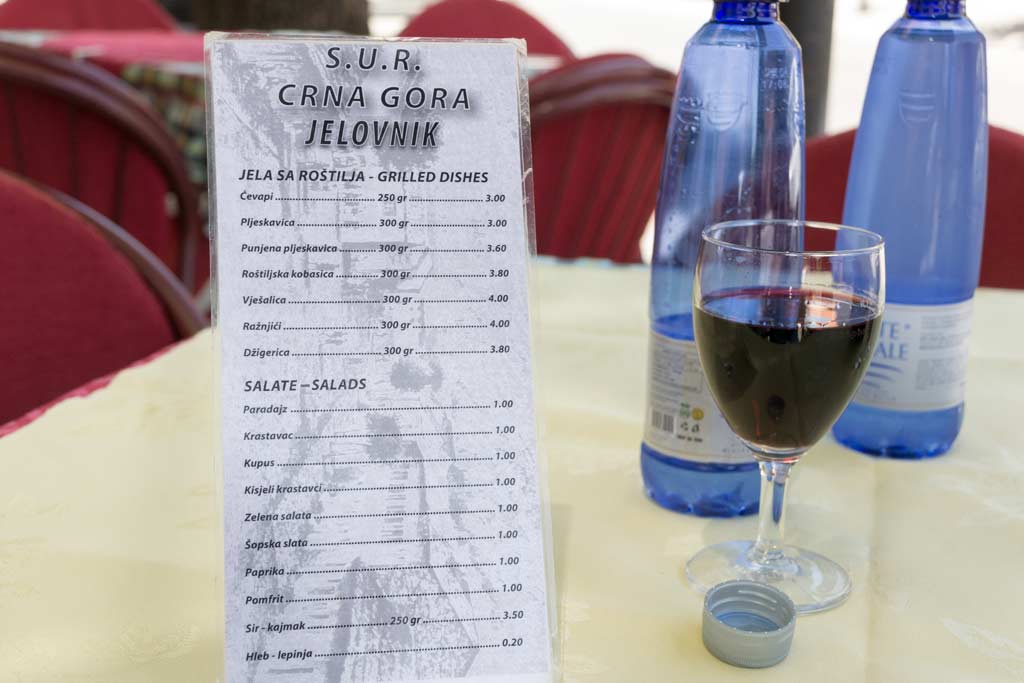 S.U.R.
CRNA GORA
JELOVNIK
JELA SA ROŠTILJA - GRILLED DISHES
Ćevapi ........................ 250 gr .................. 3.00
Pljeskavica .................... 300 gr .................. 3.00
Punjena pljeskavica ............ 300 gr .................. 3.60
Roštiljska kobasica ............ 300 gr .................. 3.80
Vješalica ...................... 300 gr .................. 4.00
Ražnjići ....................... 300 gr .................. 4.00
Džigerica ...................... 300 gr .................. 3.80
SALATE – SALADS
Paradajz .................................................. 1.00
Krastavac ................................................. 1.00
Kupus ..................................................... 1.00
Kisjeli krastavci ......................................... 1.00
Zelena salata ............................................. 1.00
Šopska slata .............................................. 1.00
Paprika ................................................... 1.00
Pomfrit ................................................... 1.00
Sir - kajmak ................... 250 gr .................. 3.50
Hleb - lepinja ............................................ 0.20